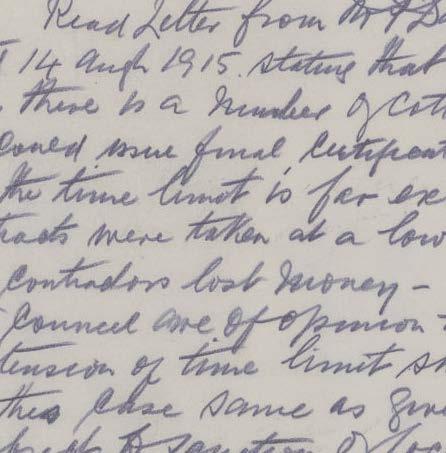 Read Letter from Mr P D
14 Augt 1915. stating that
there is a number of Cott
issue final Certificat
the time limit is far ex
tracts were taken at a low
contractors lost money -
Council are of opinion
tension of time limit
this case same as give
to sanction of loc